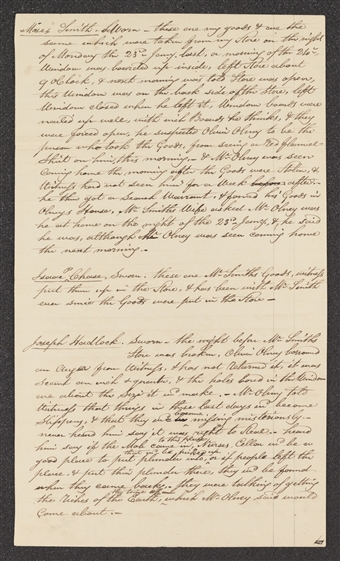 Moses Smith. Sworn — these are my goods & are the
same which were taken from my Store on the night
of Monday the 23d Jany last, or morning of the 24th
Window was boarded up inside, left Store about
9 oClock, & next morning was told Store was open,
this Window was on the back side of the Store, left
Window closed when he left it, Window boards were
nailed up well, with nails he thinks, & they
were forced open, he suspected Olivir Olney to be the
person who took the Goods, from seeing a Red flannel
Shirt on him, this morning, & Mr Olney was seen
coming home the morning after the Goods were Stolen, &
Witness had not seen him for a Week after
he then got a Search Warrant & found his Goods in
Olneys House, Mr Smiths Wife asked Mr Olney was
he at home on the night of the 23d Jany, & he said
he was, although Mr Olney was seen coming home
the next morning —
Chase, Sworn. these are Mr Smiths Goods, witness
put them up in the Store, & has been with Mr Smith
ever since the Goods were put in the Store —
Joseph Hadlock. Sworn — the night before Mr Smiths
Store was broken, Olivir Olney borrowed
an Auger from Witness, & has not returned it, it was
about an inch & quarter, & the holes bored in the Window
are about the Size it wd make. — Mr Olney told
Witness that things in these last days wd become
Slippery, & that they wd become mysteriously —
never heard him say it was right to Steal — heard
him say if the Mob came in to this place, Nurses Cellar wd be a
good place to put plunder in, or if people left the
place & put their plunder there, they wd be found
when they came back. — they were talking of getting
the Riches of the Earth, which Mr Olney said would
Come about. —